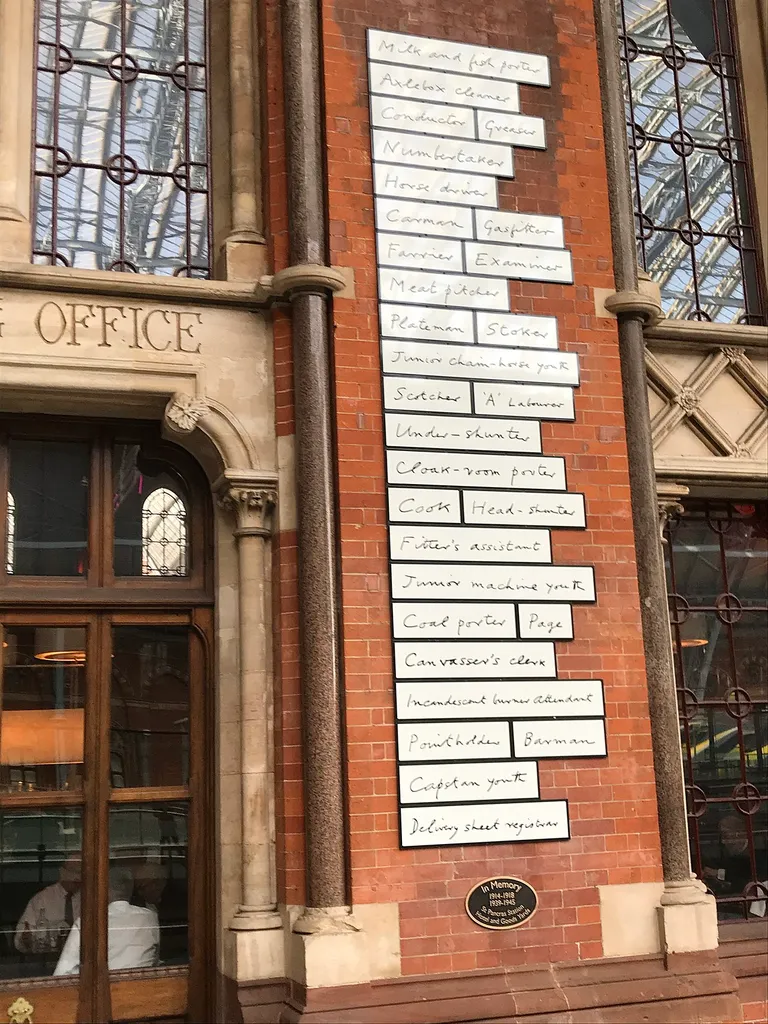 G OFFICE
Milk and fish porter
Axlebox cleaner
Conductor Greaser
Numbertaker
Horse driver
Carman Gasfitter
Farrier Examiner
Meat pitcher
Plateman Stoker
Junior chain-horse youth
Scotcher 'A' Labourer
Under-shunter
Cloak-room porter
Cook Head-shunter
Fitter's assistant
Junior machine youth
Coal porter Page
Canvasser's clerk
Incandescent burner attendant
Pointholder Barman
Capstan youth
Delivery sheet registrar
In Memory
1914-1918
1939-1945
St Pancras Station
Hotel and Goods Yards